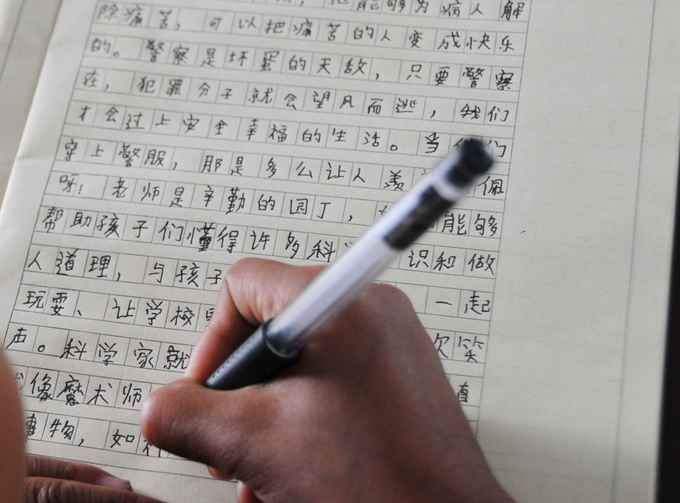 能够为病人解
除痛苦，可以把痛苦的人变成快乐
的。警察是坏蛋的天敌，只要警察
在，犯罪分子就会望风而逃，我们
才会过上安全幸福的生活。当们
穿上警服，那是多么让人羡佩
呀；老师是辛勤的园丁，能够
帮助孩子们懂得许多科识和做
人道理，与孩子一起
玩耍、让学校
声。科学家就欢笑
像魔术师
物，如